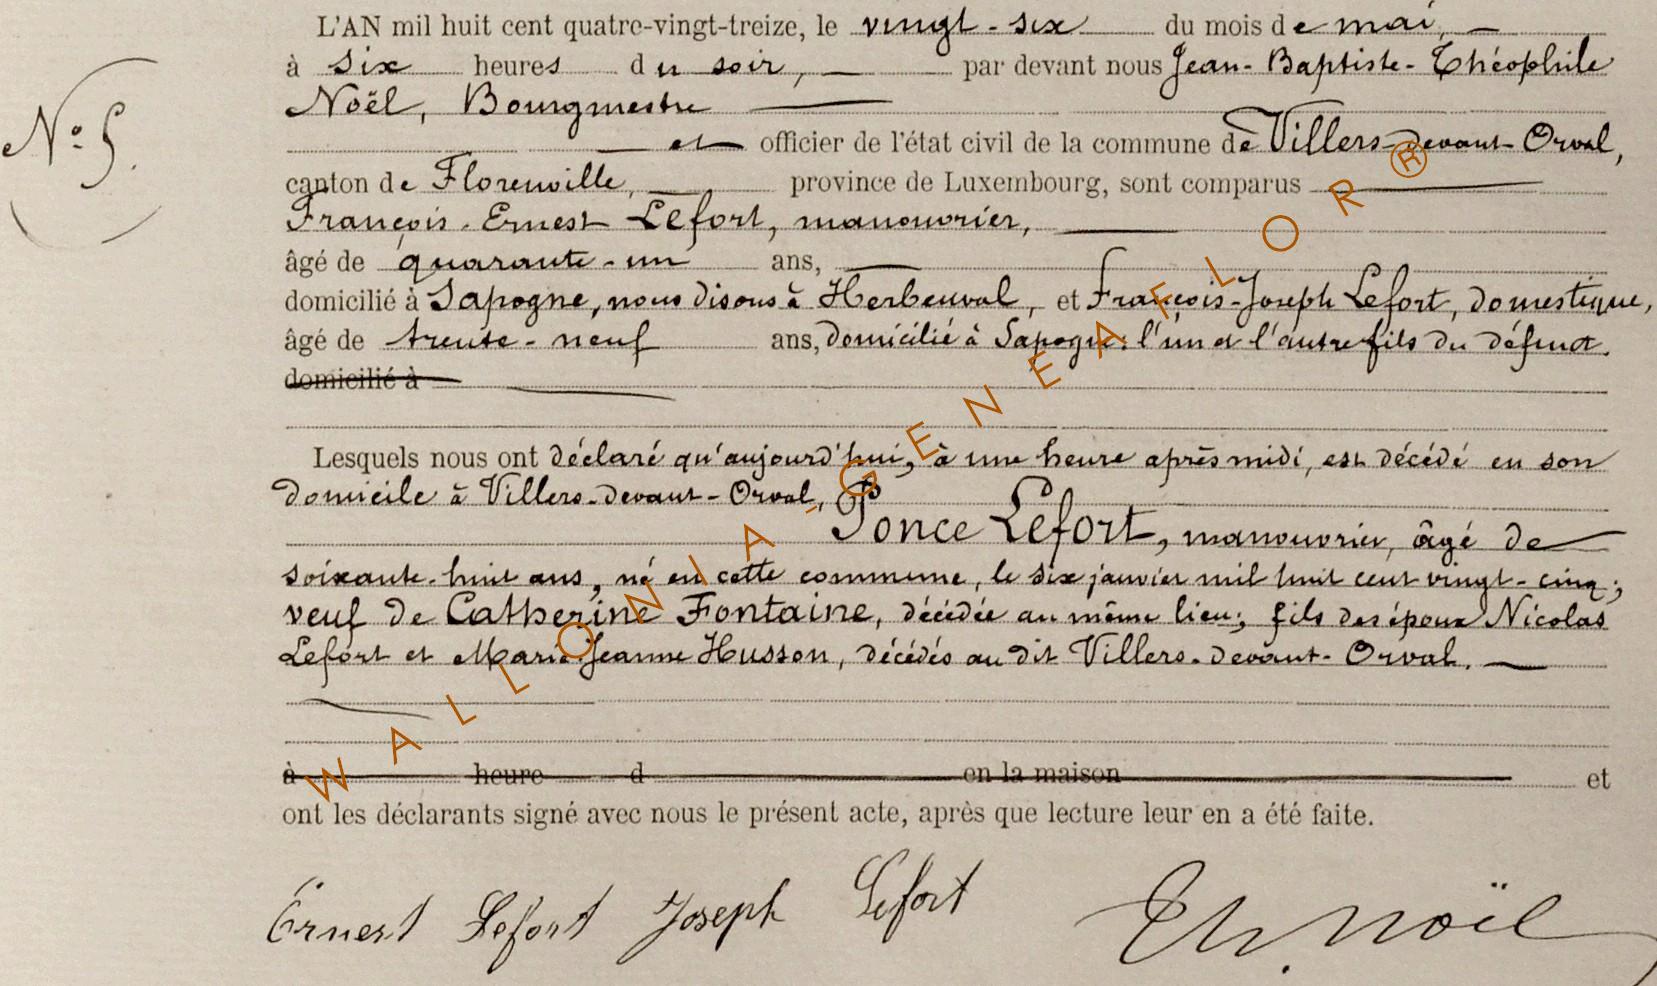 L'AN mil huit cent quatre-vingt-treize, le vingt-six du mois de mai,
à six heures du soir, par devant nous Jean-Baptiste-Théophile
Noël, Bourgmestre
N° 5.
et officier de l'état civil de la commune de Villers-devant-Orval,
canton de Florenville, province de Luxembourg, sont comparus
François-Ernest Lefort, manouvrier,
âgé de quarante-un ans,
domicilié à Sapogne, nous disons à Herbeuval, et François-Joseph Lefort, domestique,
âgé de trente-neuf ans, domicilié à Sapogne: l'un et l'autre fils du défunt.
domicilié à
Lesquels nous ont déclaré qu'aujourd'hui, à une heure après midi, est décédé en son
domicile à Villers-devant-Orval,
Ponce Lefort, manouvrier, âgé de
soixante-huit ans, né en cette commune, le six janvier mil huit cent vingt-cinq;
veuf de Catherine Fontaine, décédée au même lieu; fils des époux Nicolas
Lefort et Marie-Jeanne Husson, décédés au dit Villers-devant-Orval.
à heure d en la maison et
ont les déclarants signé avec nous le présent acte, après que lecture leur en a été faite.
Ernest Lefort Joseph Lefort Th. Noël
WALLONIA-GENEAFLOR®